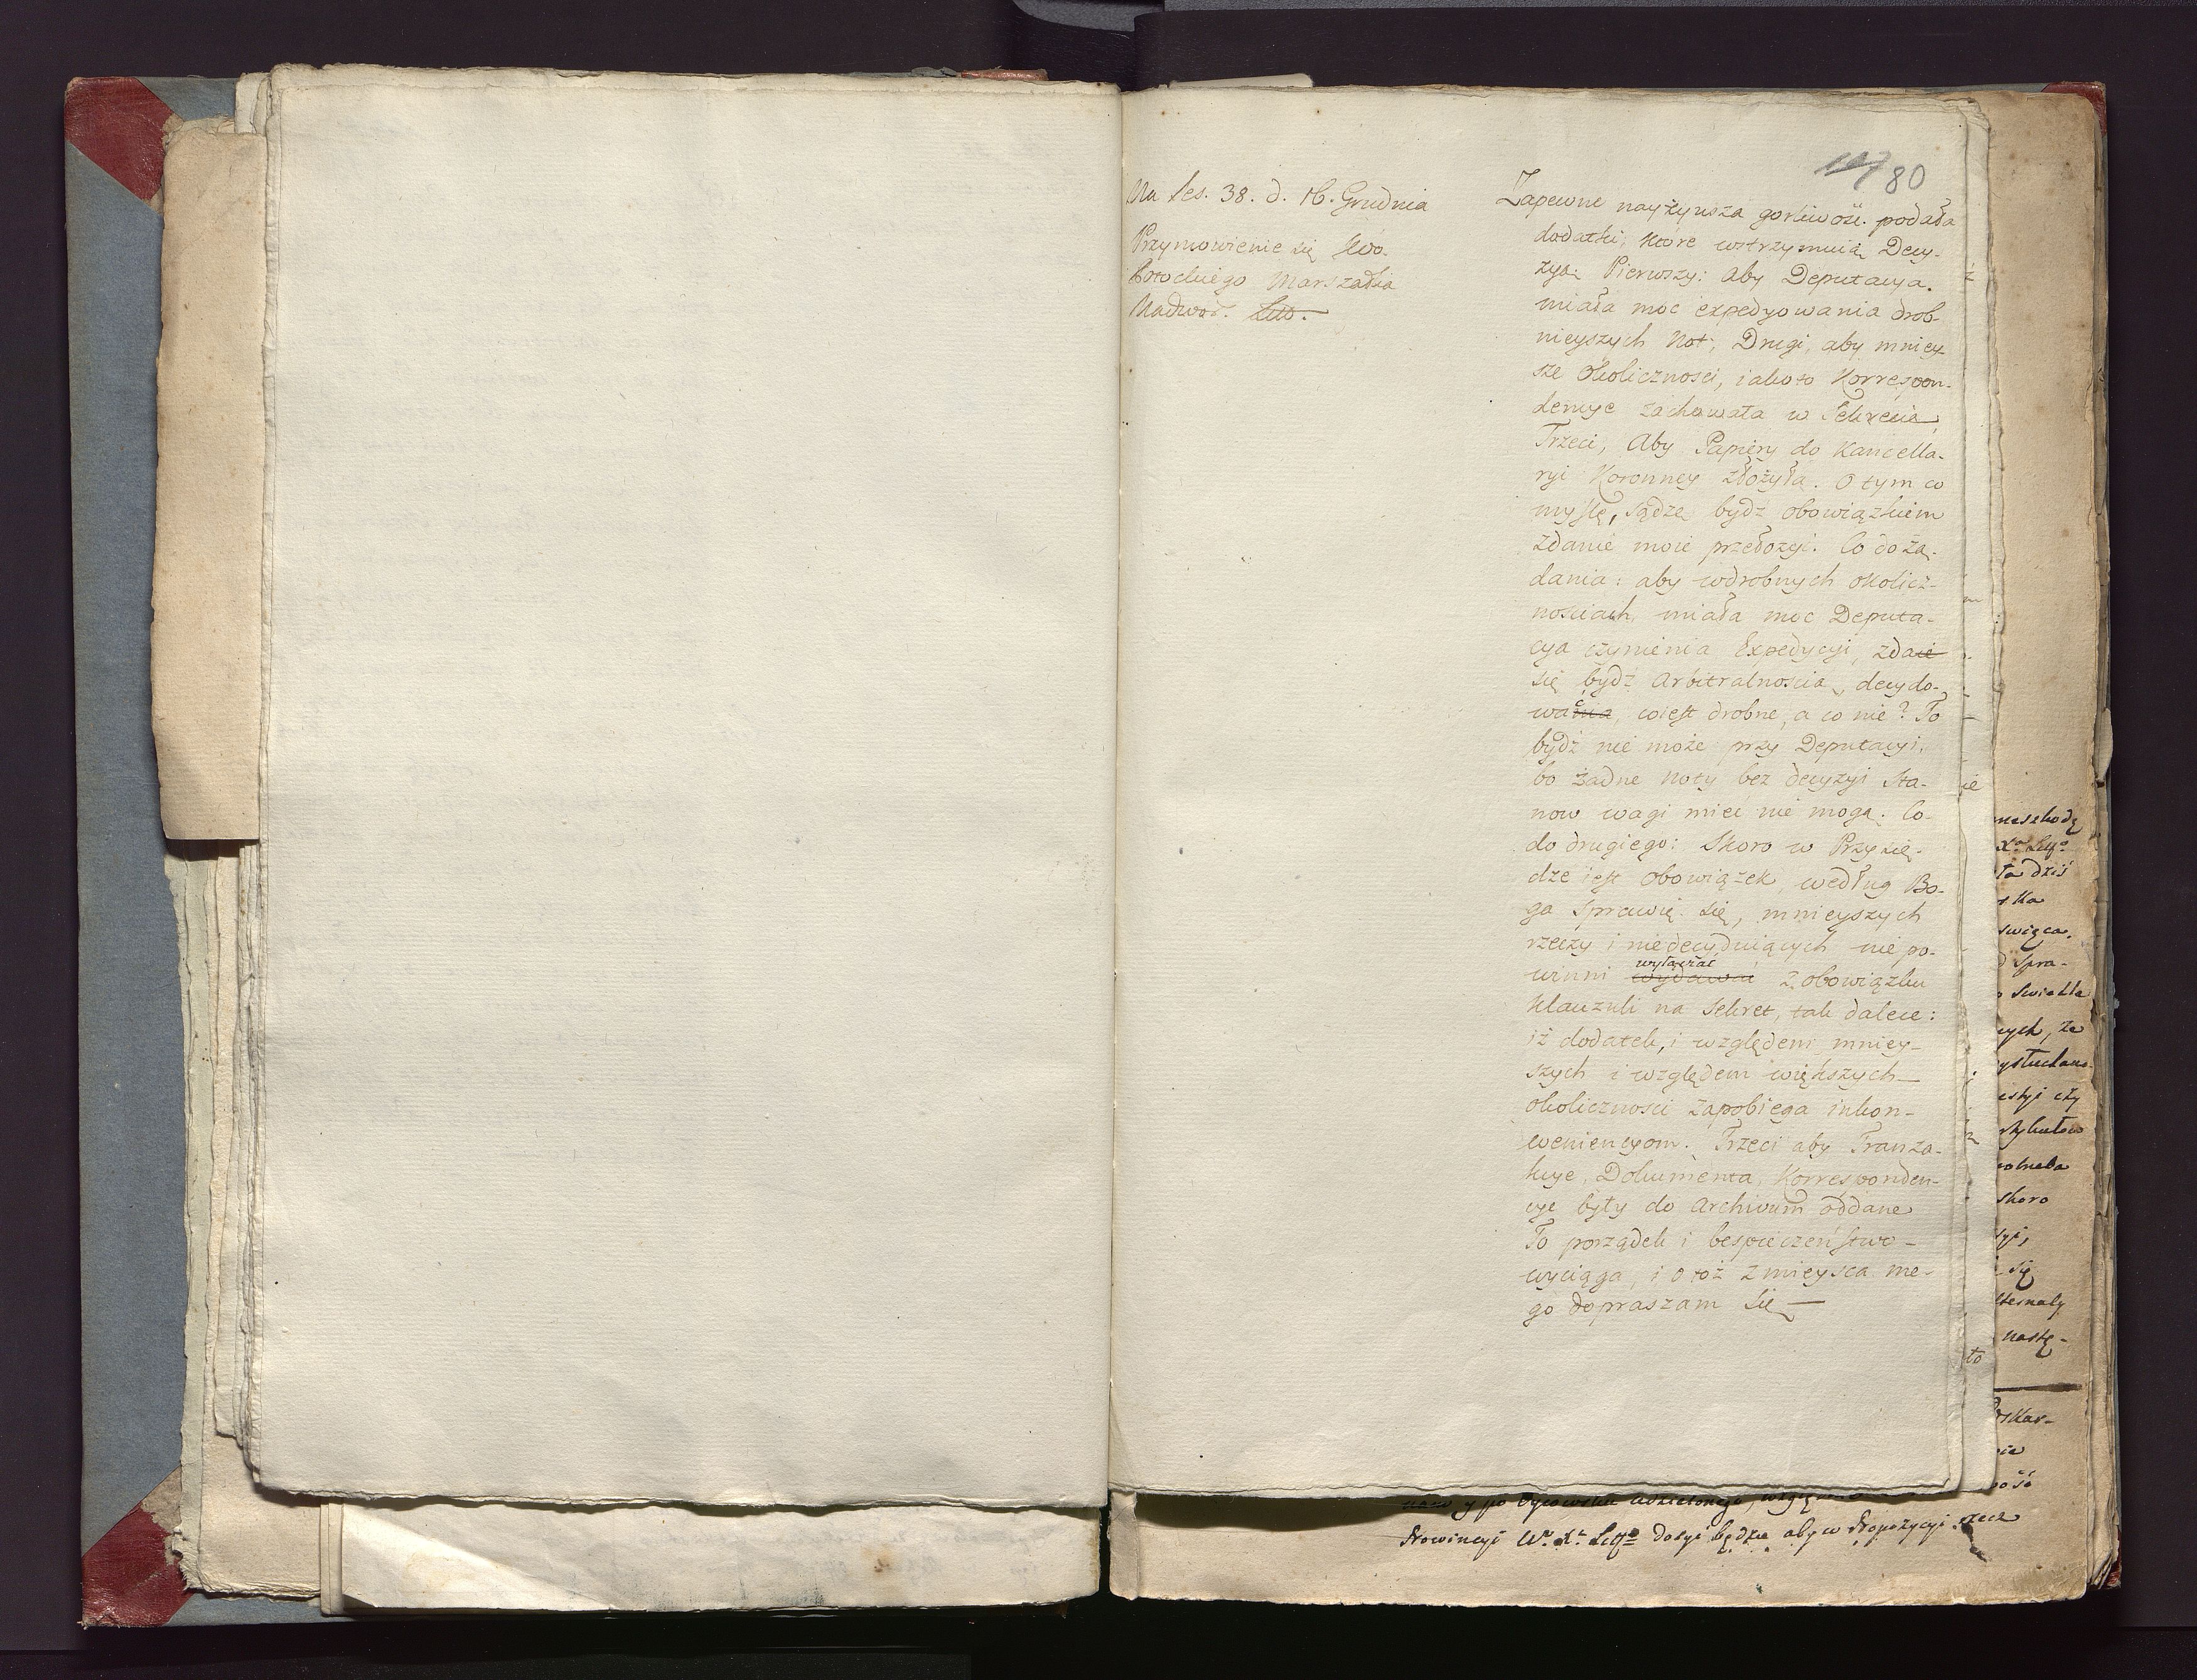 80
Na Ses. 38. d. 16. Grudnia
Przymowienie się
Potockiego Marszałka
Nadwor. Litt.
Zapewne nayżywsza gorliwość podała
dodatki, które wstrzymuią Decy-
zyą: Pierwszy: aby Deputacya
miała moc expedyowania drob-
nieyszych Not; Drugi, aby mniey-
sze okolicznosci, iakoto Korrespon-
dencye zachowała w Sekrecie,
Trzeci, Aby Papiery do Kancella-
ryi Koronney złożyła. O tym co
myślę, sądzę bydź obowiązkiem
zdanie moie przełożyć. Co do żą-
dania: aby w drobnych okolicz-
nosciach, miała moc Deputa-
cya czynienia Expedycyi, zdaie
się bydź Arbitralnoscią, decydo-
wać, co iest drobne, a co nie? To
bydź nie może przy Deputacyi,
bo żadne Noty bez decyzyi Sta-
now wagi miec nie mogą. Co
do drugiego: Skoro w Przysię-
dze iest obowiązek, według Bo-
ga sprawić się, mnieyszych
rzeczy i niedecyduiących nie po-
winni wydawać wyłączać z obowiązku
Klauzuli na Sekret, tak dalece:
iż dodatek, i względem mniey-
szych i względem większych
okolicznosci zapobiega inkon-
weniencyom. Trzeci aby Tranza-
kcye, Dokumenta, Korresponden-
cye były do Archivum oddane
To porządek i bespieczeństwo
wyciąga, i o toż z mieysca me-
go dopraszam się
Prowincyi W. X. Litt dosyć będzie aby w Propozycyi rzecz